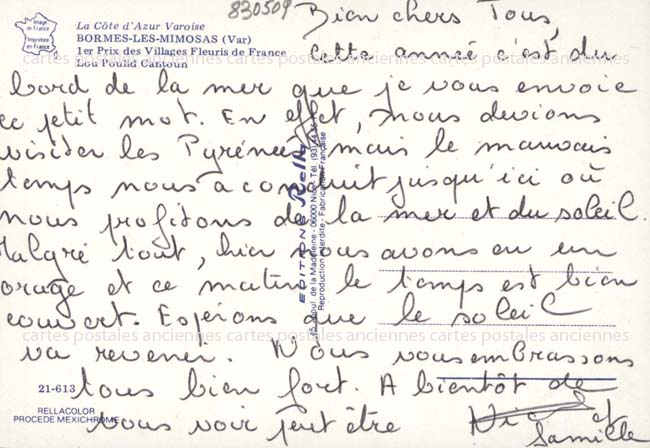 830509
Image de France
Imprimée en France
La Côte d'Azur Varoise
BORMES-LES-MIMOSAS (Var)
1er Prix des Villages Fleuris de France
Lou Poulid Cantoun
Bien chers Tous,
cette année c'est du
bord de la mer que je vous envoie
ce petit mot. En effet, nous devions
visiter les Pyrénées, mais le mauvais
temps nous a conduit jusqu'ici où
nous profitons de la mer et du soleil.
Malgré tout, hier nous avons eu un
orage et ce matin le temps est bien
couvert. Espérons que le soleil
va revenir. Nous vous embrassons
tous bien fort. A bientôt de
vous voir peut être
et famille
EDITIONS Rella
Reproduction Interdite - Fabrication Française
21-613
RELLACOLOR
PROCEDE MEXICHROME
cartes postales anciennes cartes postales anciennes cartes postales anciennes
cartes postales anciennes cartes postales anciennes cartes postales anciennes